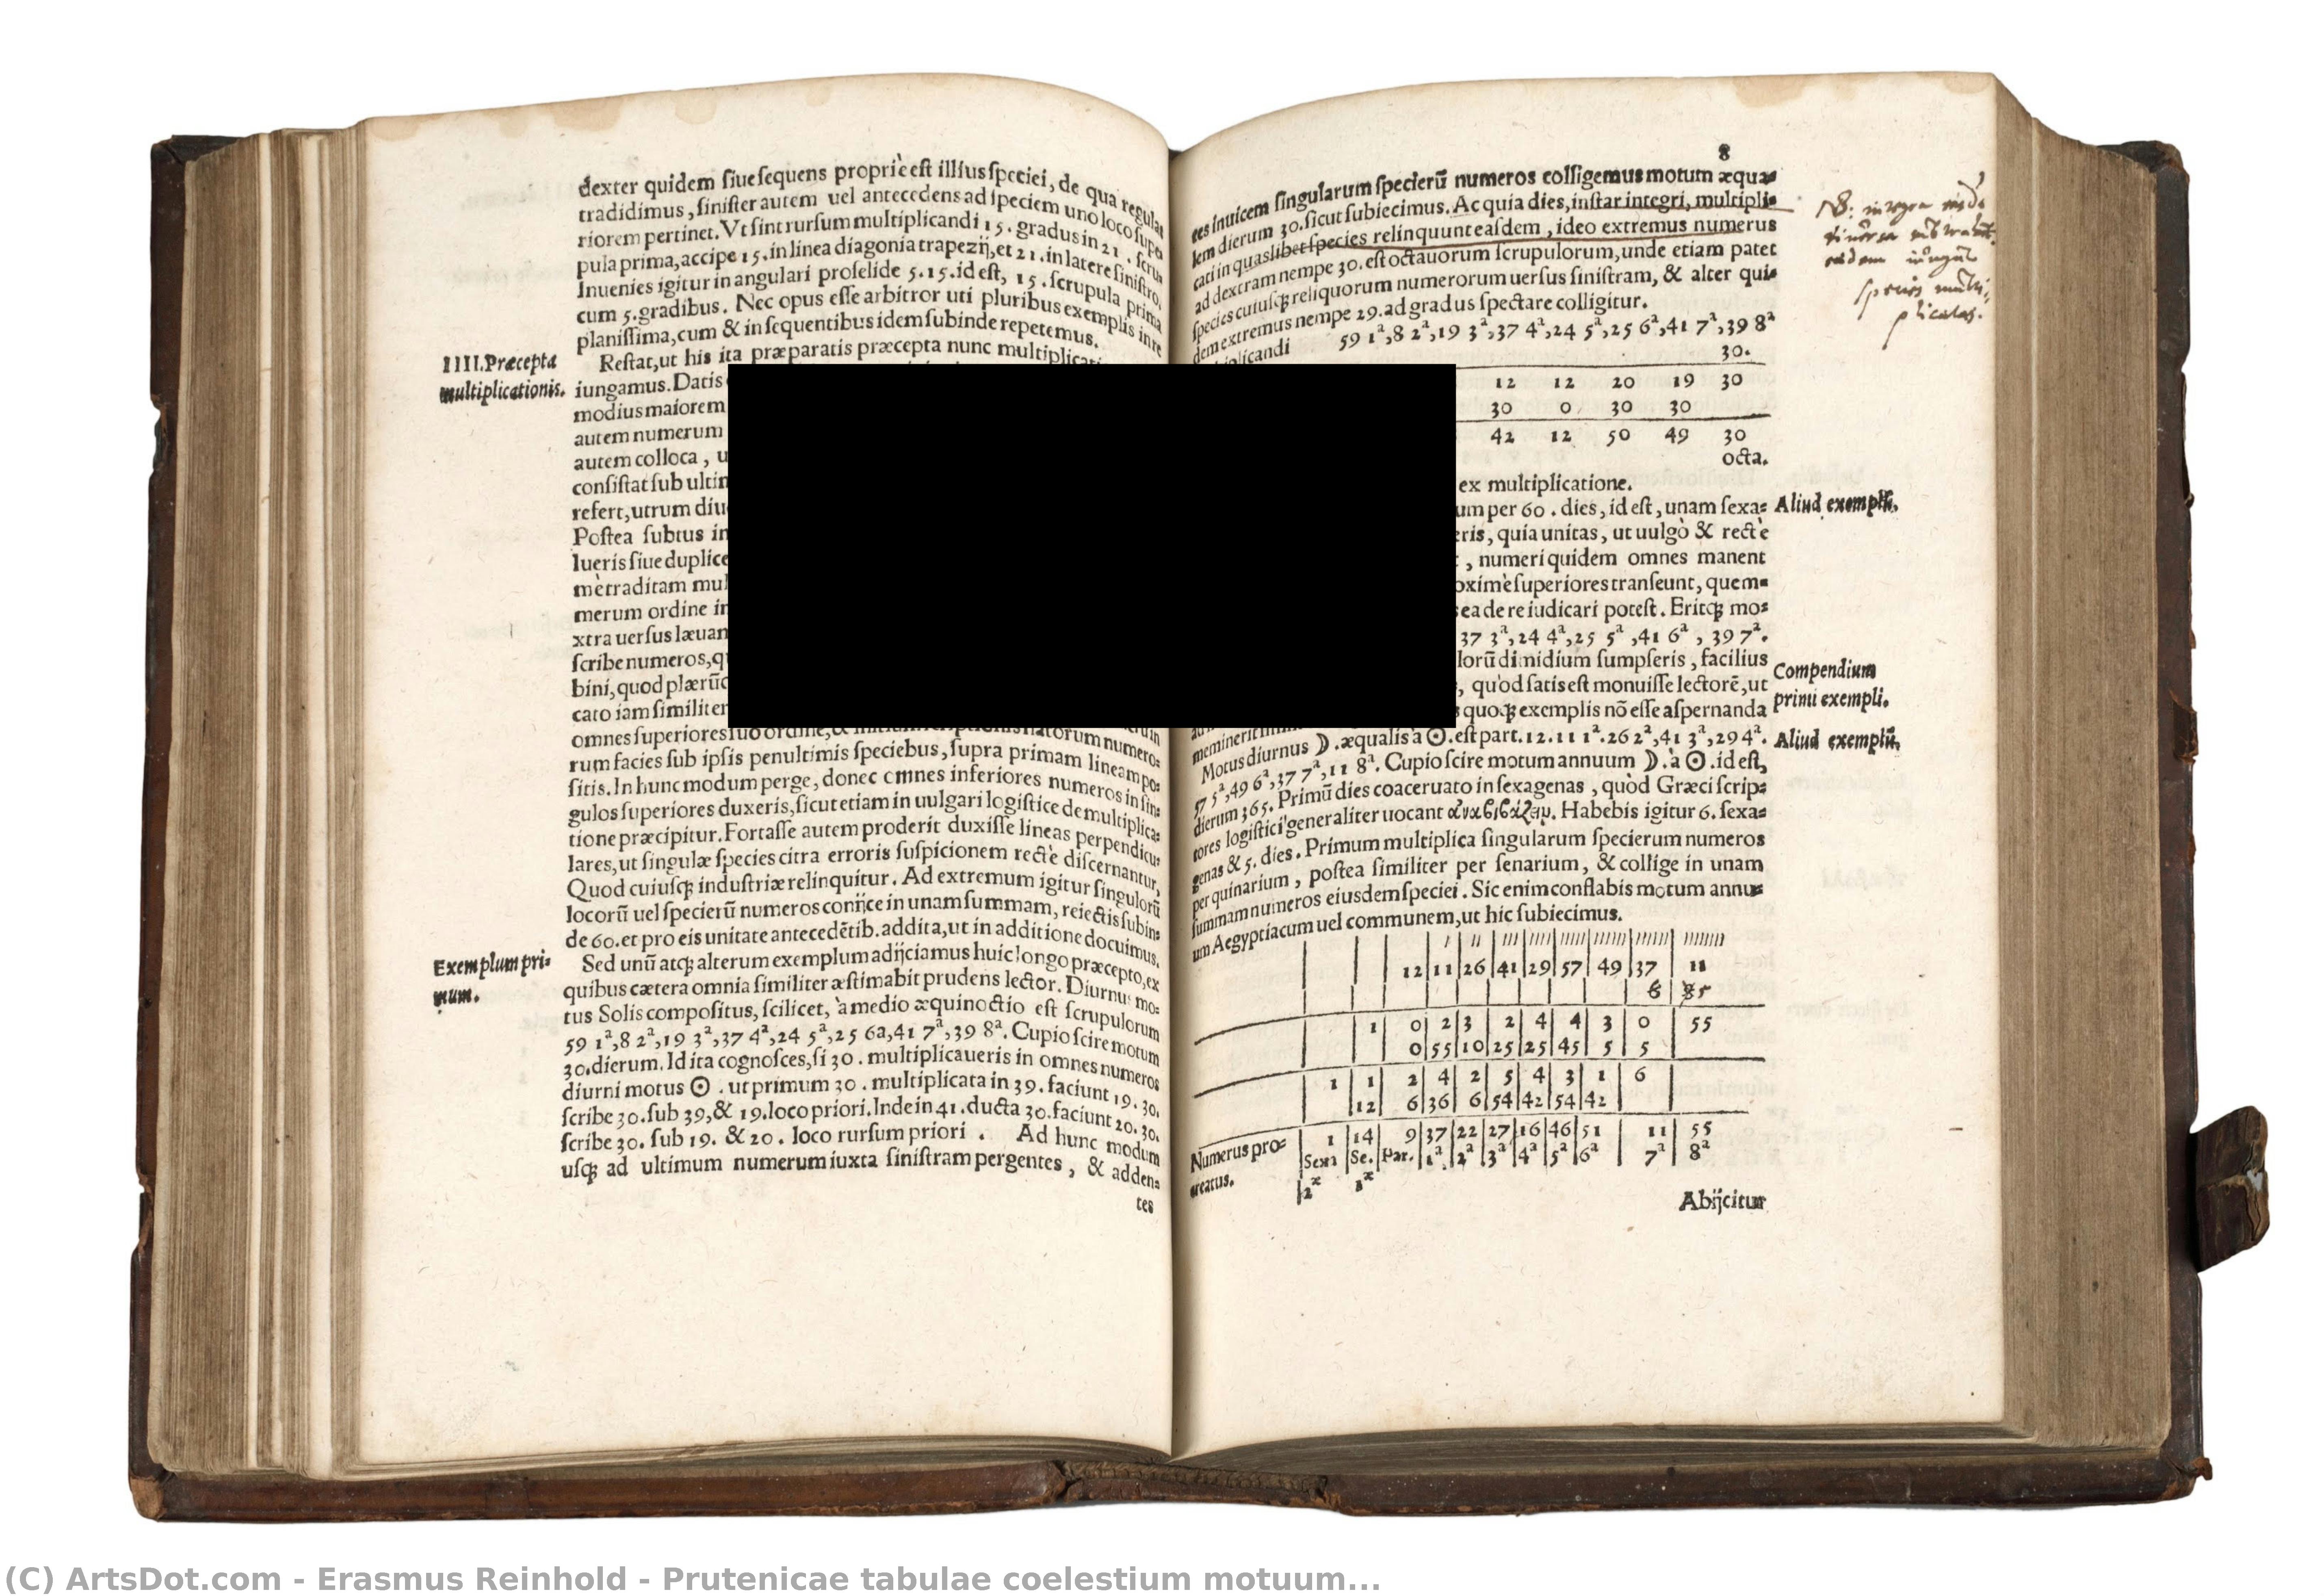 dexter quidem siue sequens propriè est illius speciei, de qua regulas
tradidimus, sinister autem uel antecedens ad speciem uno loco supe
riorem pertinet. Vt sint rursum multiplicandi 15. gradus in 21. scru
pula prima, accipe 15. in linea diagonia trapezij, et 21. in latere sinistro.
Inuenies igitur in angulari proselide 5.15. id est, 15. scrupula prima
cum 5. gradibus. Nec opus esse arbitror uti pluribus exemplis in re
planissima, cum & in sequentibus idem subinde repetemus.
IIII. Præcepta
multiplicationis.
Restat, ut his ita præparatis præcepta nunc
iungamus. Datis
modius maiorem
autem numerum
autem colloca, u
consistat sub ultim
refert, utrum diu
Postea subtus in
lueris siue duplice
mè traditam mul
merum ordine in
xtra uersus læuam
scribe numeros, q
bini, quod plærũq
cato iam similiter
omnes superiores suo ordine, numero-
rum facies sub ipsis penultimis speciebus, supra primam lineam po-
sitis. In hunc modum perge, donec omnes inferiores numeros in sin-
gulos superiores duxeris, sicut etiam in uulgari logistice de multiplica-
tione præcipitur. Fortasse autem proderit duxisse lineas perpendicu-
lares, ut singulæ species citra erroris suspicionem rectè discernantur,
Quod cuiusq; industriæ relinquitur. Ad extremum igitur singulorũ
locorũ uel specierũ numeros conijce in unam summam, reiectis subin-
de 60. et pro eis unitate antecedẽtib. addita, ut in additione docuimus.
Exemplum pri-
mum.
Sed unũ atq; alterum exemplum adijciamus huic longo præcepto, ex
quibus cætera omnia similiter æstimabit prudens lector. Diurnus mo-
tus Solis compositus, scilicet, à medio æquinoctio est scrupulorum
59 1ª, 8 2ª, 19 3ª, 37 4ª, 24 5ª, 25 6a, 41 7ª, 39 8ª. Cupio scire motum
30. dierum. Id ita cognosces, si 30. multiplicaueris in omnes numeros
diurni motus ☉. ut primum 30. multiplicata in 39. faciunt 19. 30.
scribe 30. sub 39, & 19. loco priori. Inde in 41. ducta 30. faciunt 20. 30.
scribe 30. sub 19. & 20. loco rursum priori. Ad hunc modum
usq; ad ultimum numerum iuxta sinistram pergentes, & adden-
tes
8
tes inuicem singularum specierũ numeros colligemus motum æqua-
lem dierum 30. sicut subiecimus. Ac quia dies, instar integri, multipli-
cati in quaslibet species relinquunt easdem, ideo extremus numerus
ad dextram nempe 30. est octauorum scrupulorum, unde etiam patet
species cuiusq; reliquorum numerorum uersus sinistram, & alter qui-
dem extremus nempe 29. ad gradus spectare colligitur.
59 1ª, 8 2ª, 19 3ª, 37 4ª, 24 5ª, 25 6ª, 41 7ª, 39 8ª
30.
12 12 20 19 30
30 0 30 30
42 12 50 49 30
octa.
ex multiplicatione.
um per 60. dies, id est, unam sexa-
Aliud exemplũ.
eris, quia unitas, ut uulgò & rectè
, numeri quidem omnes manent
oximè superiores transeunt, quem-
ea de re iudicari potest. Eritq; mo-
37 3ª, 24 4ª, 25 5ª, 41 6ª, 39 7ª.
lorũ dimidium sumpseris, facilius
Compendium
primi exempli.
, quod satis est monuisse lectorẽ, ut
quoq; exemplis nõ esse aspernanda
meminerit
Motus diurnus ☽. æqualis à ☉. est part. 12. 11 1ª. 26 2ª, 41 3ª, 29 4ª.
Aliud exemplũ.
57 5ª, 49 6ª, 37 7ª, 11 8ª. Cupio scire motum annuum ☽. à ☉. id est,
dierum 365. Primũ dies coaceruato in sexagenas, quòd Græci scrip-
tores logistici generaliter uocant ἀναβιβάζειν. Habebis igitur 6. sexa-
genas & 5. dies. Primum multiplica singularum specierum numeros
per quinarium, postea similiter per senarium, & collige in unam
summam numeros eiusdem speciei. Sic enim conflabis motum annu-
um Aegyptiacum uel communem, ut hic subiecimus.
12 11 26 41 29 57 49 37 11
6 5
1 0 2 3 2 4 4 3 0 55
0 55 10 25 25 45 5 5
1 1 2 4 2 5 4 3 1 6
12 6 36 6 54 42 54 42
Numerus pro-
creatus.
1 14 9 37 22 27 16 46 51 11 55
Sexa Se. Par. 1ª 2ª 3ª 4ª 5ª 6ª 7ª 8ª
2æ 1æ
Abijcitur
(C) ArtsDot.com - Erasmus Reinhold - Prutenicae tabulae coelestium motuum...